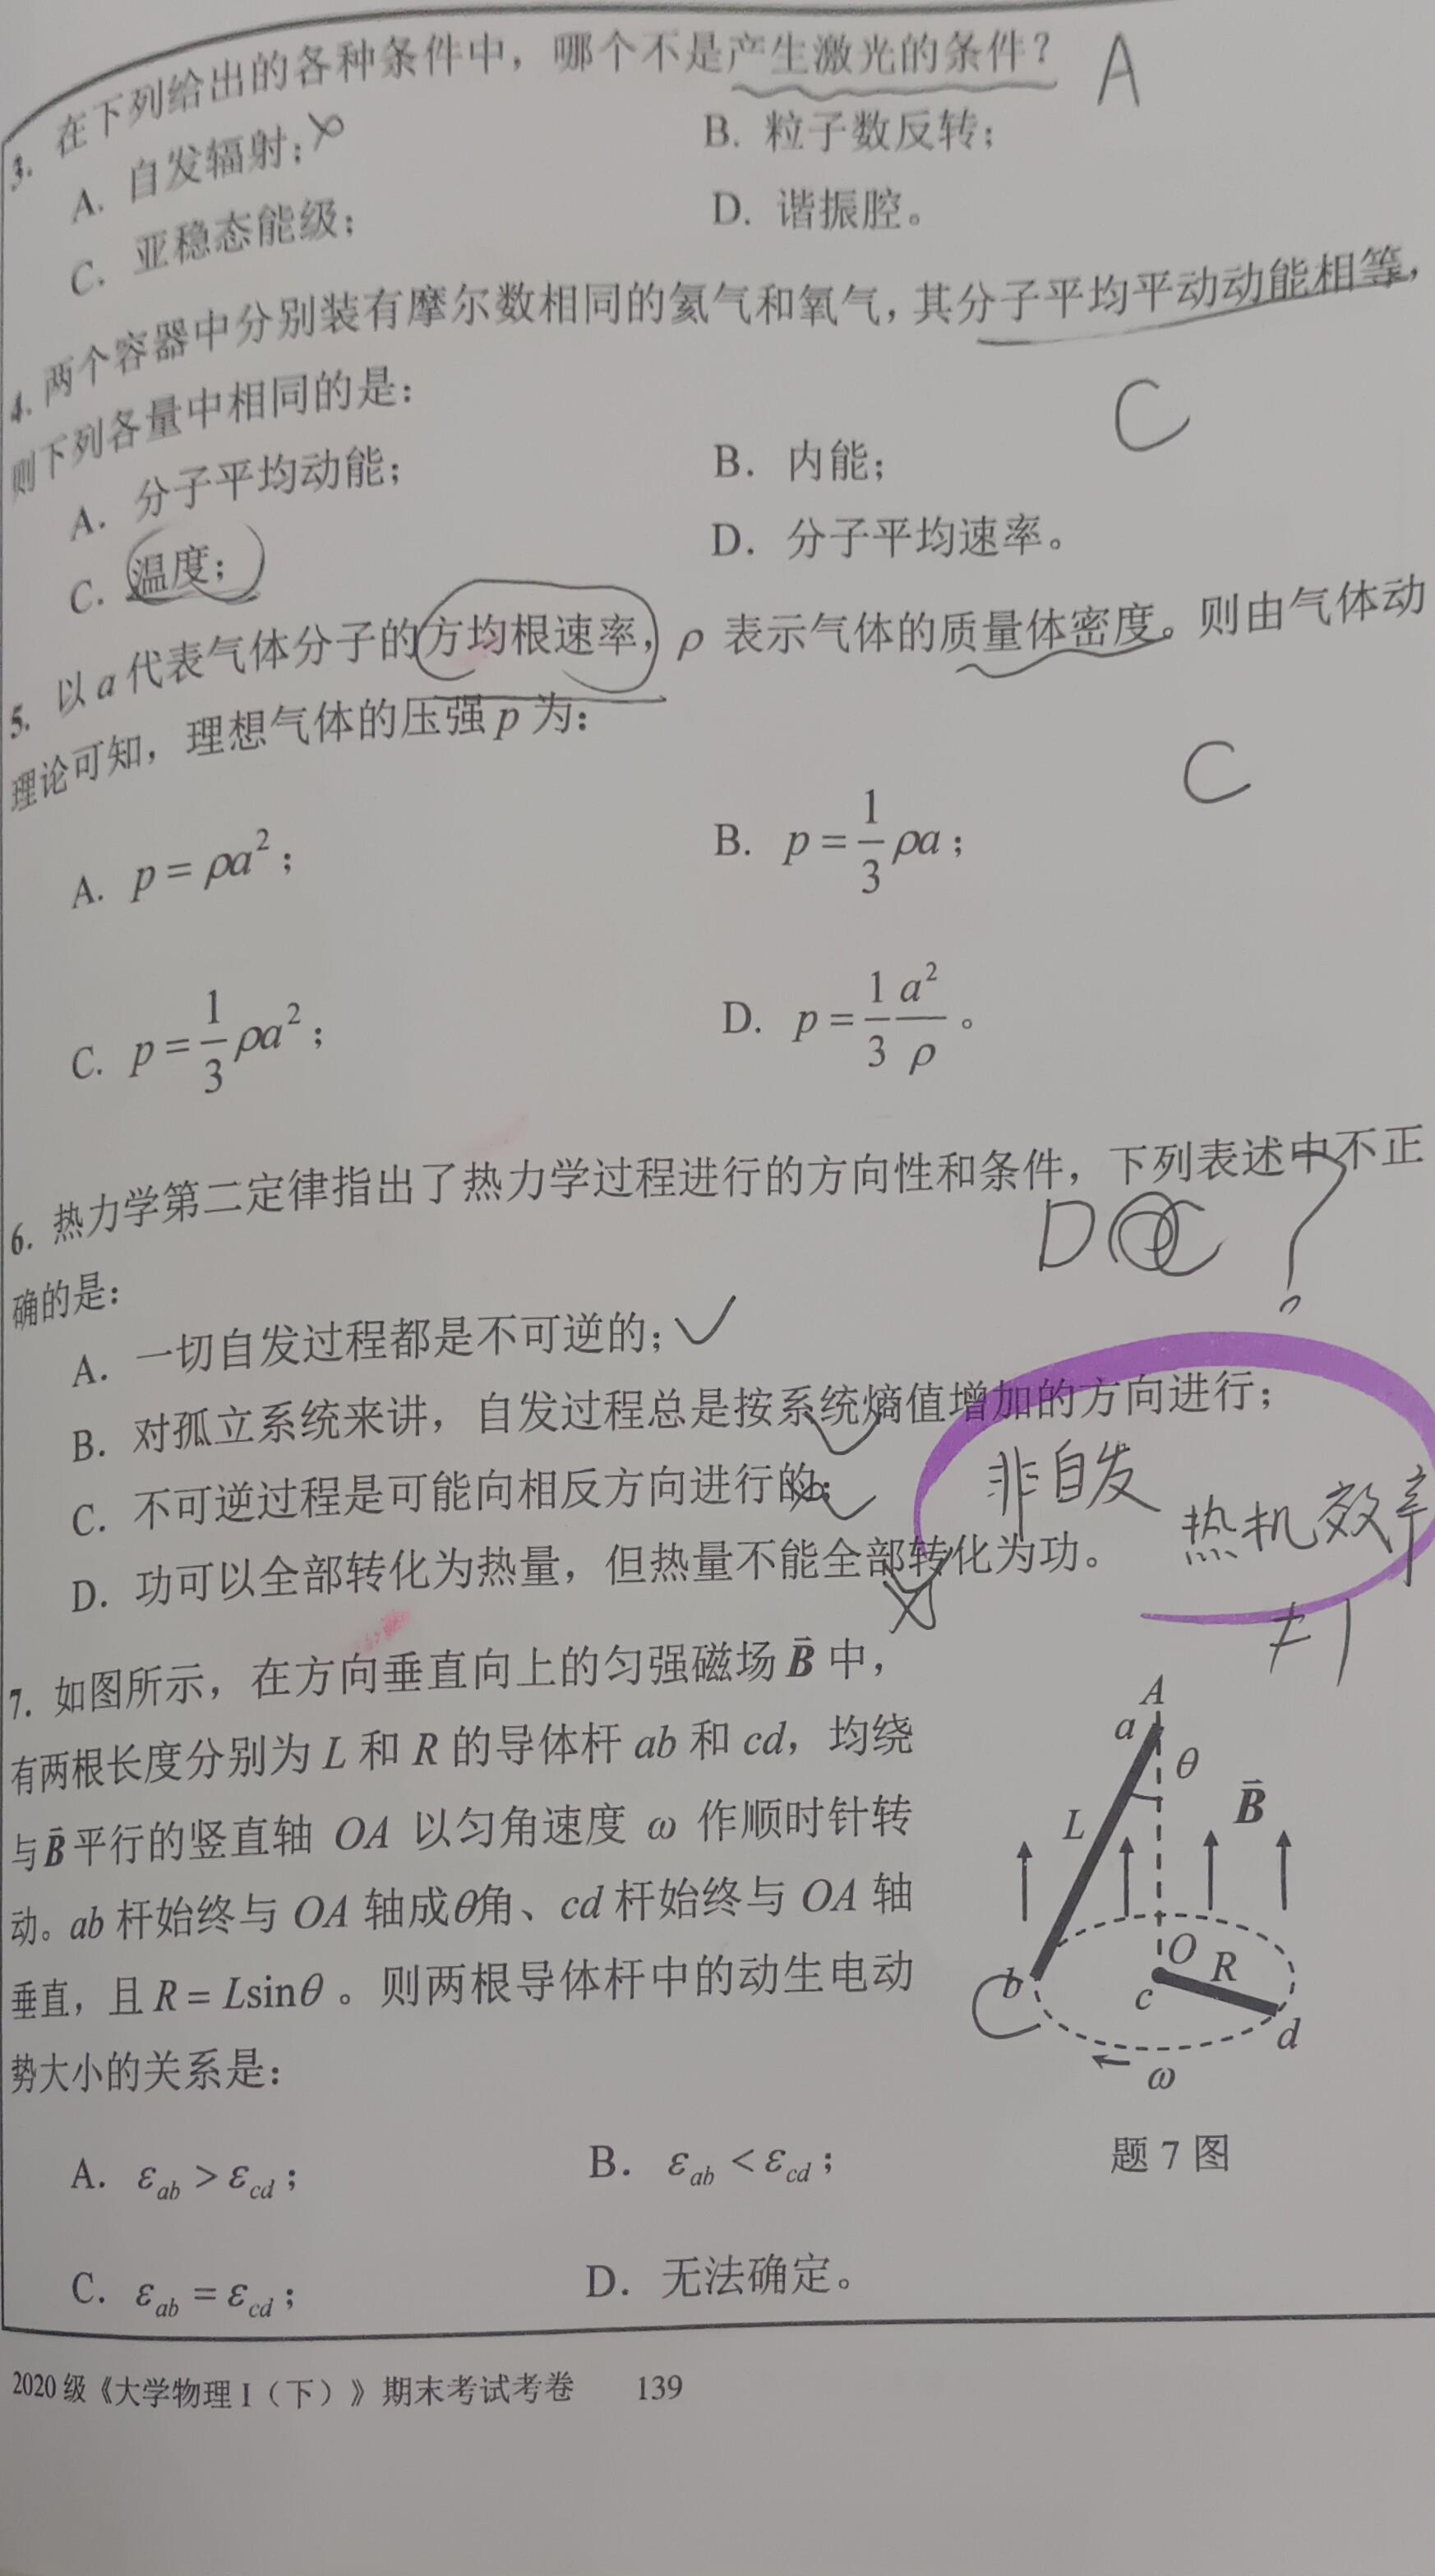 3. 在下列给出的各种条件中，哪个不是产生激光的条件？ A
A. 自发辐射； B. 粒子数反转；
C. 亚稳态能级； D. 谐振腔。
4. 两个容器中分别装有摩尔数相同的氦气和氧气，其分子平均平动动能相等，
则下列各量中相同的是： C
A. 分子平均动能； B. 内能；
C. 温度； D. 分子平均速率。
5. 以a代表气体分子的方均根速率，ρ 表示气体的质量体密度。则由气体动
理论可知，理想气体的压强p为： C
A. p = ρa²； B. p = 1/3 ρa；
C. p = 1/3 ρa²； D. p = 1/3 a²/ρ。
6. 热力学第二定律指出了热力学过程进行的方向性和条件，下列表述中不正
确的是： D C ?
A. 一切自发过程都是不可逆的；✓
B. 对孤立系统来讲，自发过程总是按系统熵值增加的方向进行；
C. 不可逆过程是可能向相反方向进行的； 非自发
D. 功可以全部转化为热量，但热量不能全部转化为功。 热机效率
≠1
7. 如图所示，在方向垂直向上的匀强磁场B⃗中，
有两根长度分别为L和R的导体杆ab和cd，均绕
与B⃗平行的竖直轴 OA 以匀角速度 ω 作顺时针转
动。ab杆始终与 OA 轴成θ角、cd杆始终与 OA 轴
垂直，且R = Lsinθ 。则两根导体杆中的动生电动
势大小的关系是：
A
a
θ
B⃗
L
O
R
b
c
d
ω
题7图
C
A. ε_ab > ε_cd； B. ε_ab < ε_cd；
C. ε_ab = ε_cd； D. 无法确定。
2020级《大学物理I（下）》期末考试考卷 139